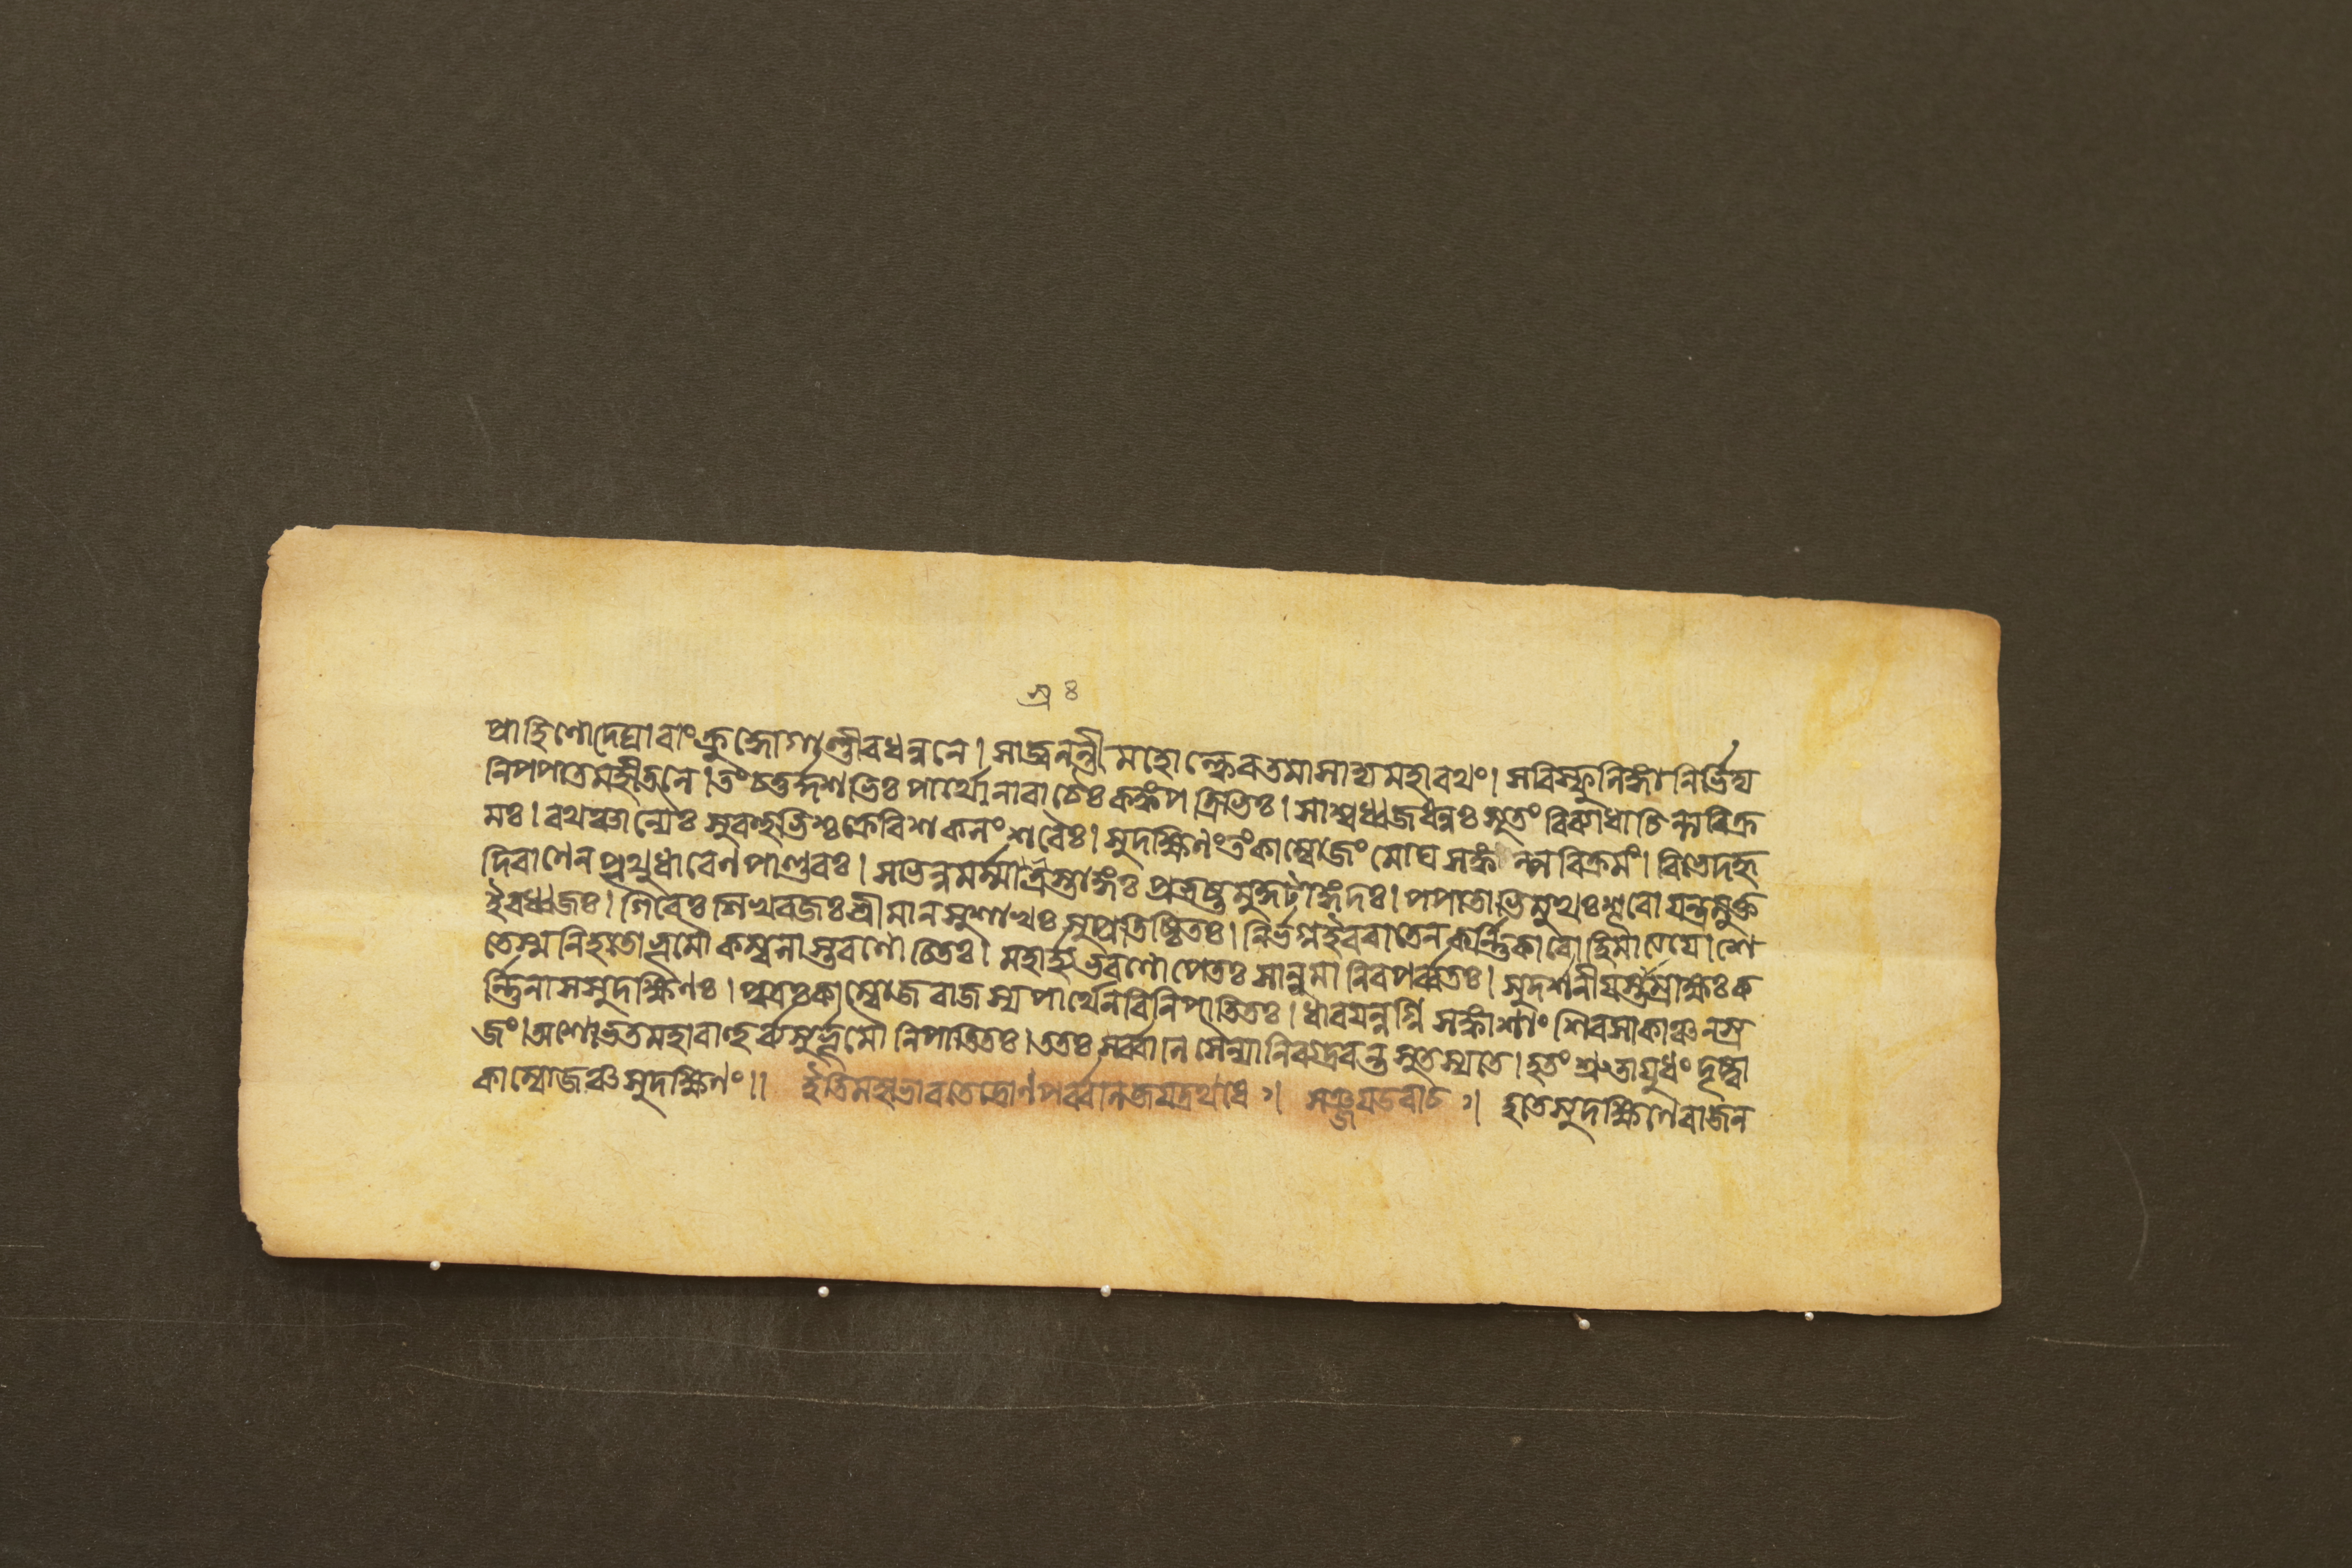 প্রাহিণোদ্দেঘ্রাবাং ক্রুদ্ধোগাণ্ডীবধন্বনে। সাজ্বলন্তী মহোল্কেব তমাসাদ্য মহাবথং। সবিস্ফুলিঙ্গা নির্ভিদ্য
নিপপাত মহীতলে। তং চতুর্দ্দশভিঃ পার্থো নাবাচৈঃ কঙ্কপত্রিভিঃ। সাশ্বধ্বজধনুঃ সূতং বিব্যাধাচিন্ত্যবিক্র
মঃ। বথঞ্চান্যৈঃ সুবহুভিশ্চক্রে বিশকলং শবৈঃ। সুদক্ষিণং তং কাম্বোজং মোঘসঙ্কল্পবিক্রমং। বিভেদ হৃ
দি বাণেন পৃথুধাবেণ পাণ্ডবঃ। স ভিন্নমর্ম্মা ত্রস্তাঙ্গঃ প্রভ্রষ্টমুকুটাঙ্গদঃ। পপাতাভিমুখঃ শূবো যন্ত্রমুক্ত
ইব ধ্বজঃ। গিবেঃ শিখবজঃ শ্রীমান সুশাখঃ সুপ্রতিষ্ঠিতঃ। নির্ভগ্ন ইব বাতেন কর্ন্নিকাবো হিমাত্যযে। শে
তে স্ম নিহতো ভূমৌ কম্বলাস্তবণোচিতঃ। মহার্হাভবণোপেতঃ সানুমানিব পর্ব্বতঃ। সুদর্শনীয়স্তাম্রাক্ষঃ ক
র্ন্নিনা স সুদক্ষিণঃ। পুত্রঃ কাম্বোজবাজস্য পার্থেন বিনিপাতিতঃ। ধাবয়ন্নগ্নিসঙ্কাশাং শিবসা কাঞ্চনস্র
জং। অশোভত মহাবাহুর্ব্যসুর্ভূমৌ নিপাতিতঃ। ততঃ সর্ব্বাণি সৈন্যানি ব্যদ্রবন্ত সুতস্য তে। হতং শ্রুতায়ুধং দৃষ্ট্বা
কাম্বোজঞ্চ সুদক্ষিণং॥ ইতি মহাভাবতে দ্রোণপর্ব্বনি জয়দ্রথবধে ৃ। সঞ্জয় উবাচ ৃ। হতে সুদক্ষিণে বাজন